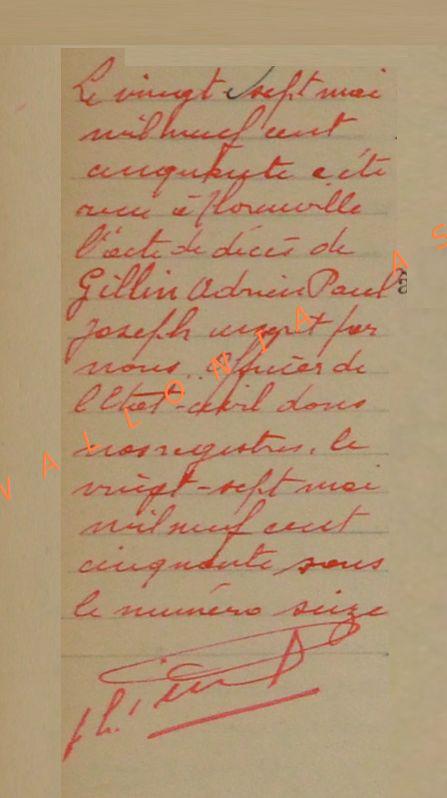 Le vingt-sept mai
mil neuf cent
cinquante a été
à Florenville
l'acte de décès de
Gillin Adrien Paul
Joseph inscrit par
nous, Officier de
l'Etat-civil dans
nos registres, le
vingt-sept mai
mil neuf cent
cinquante sous
le numéro seize
WALLONIA AS